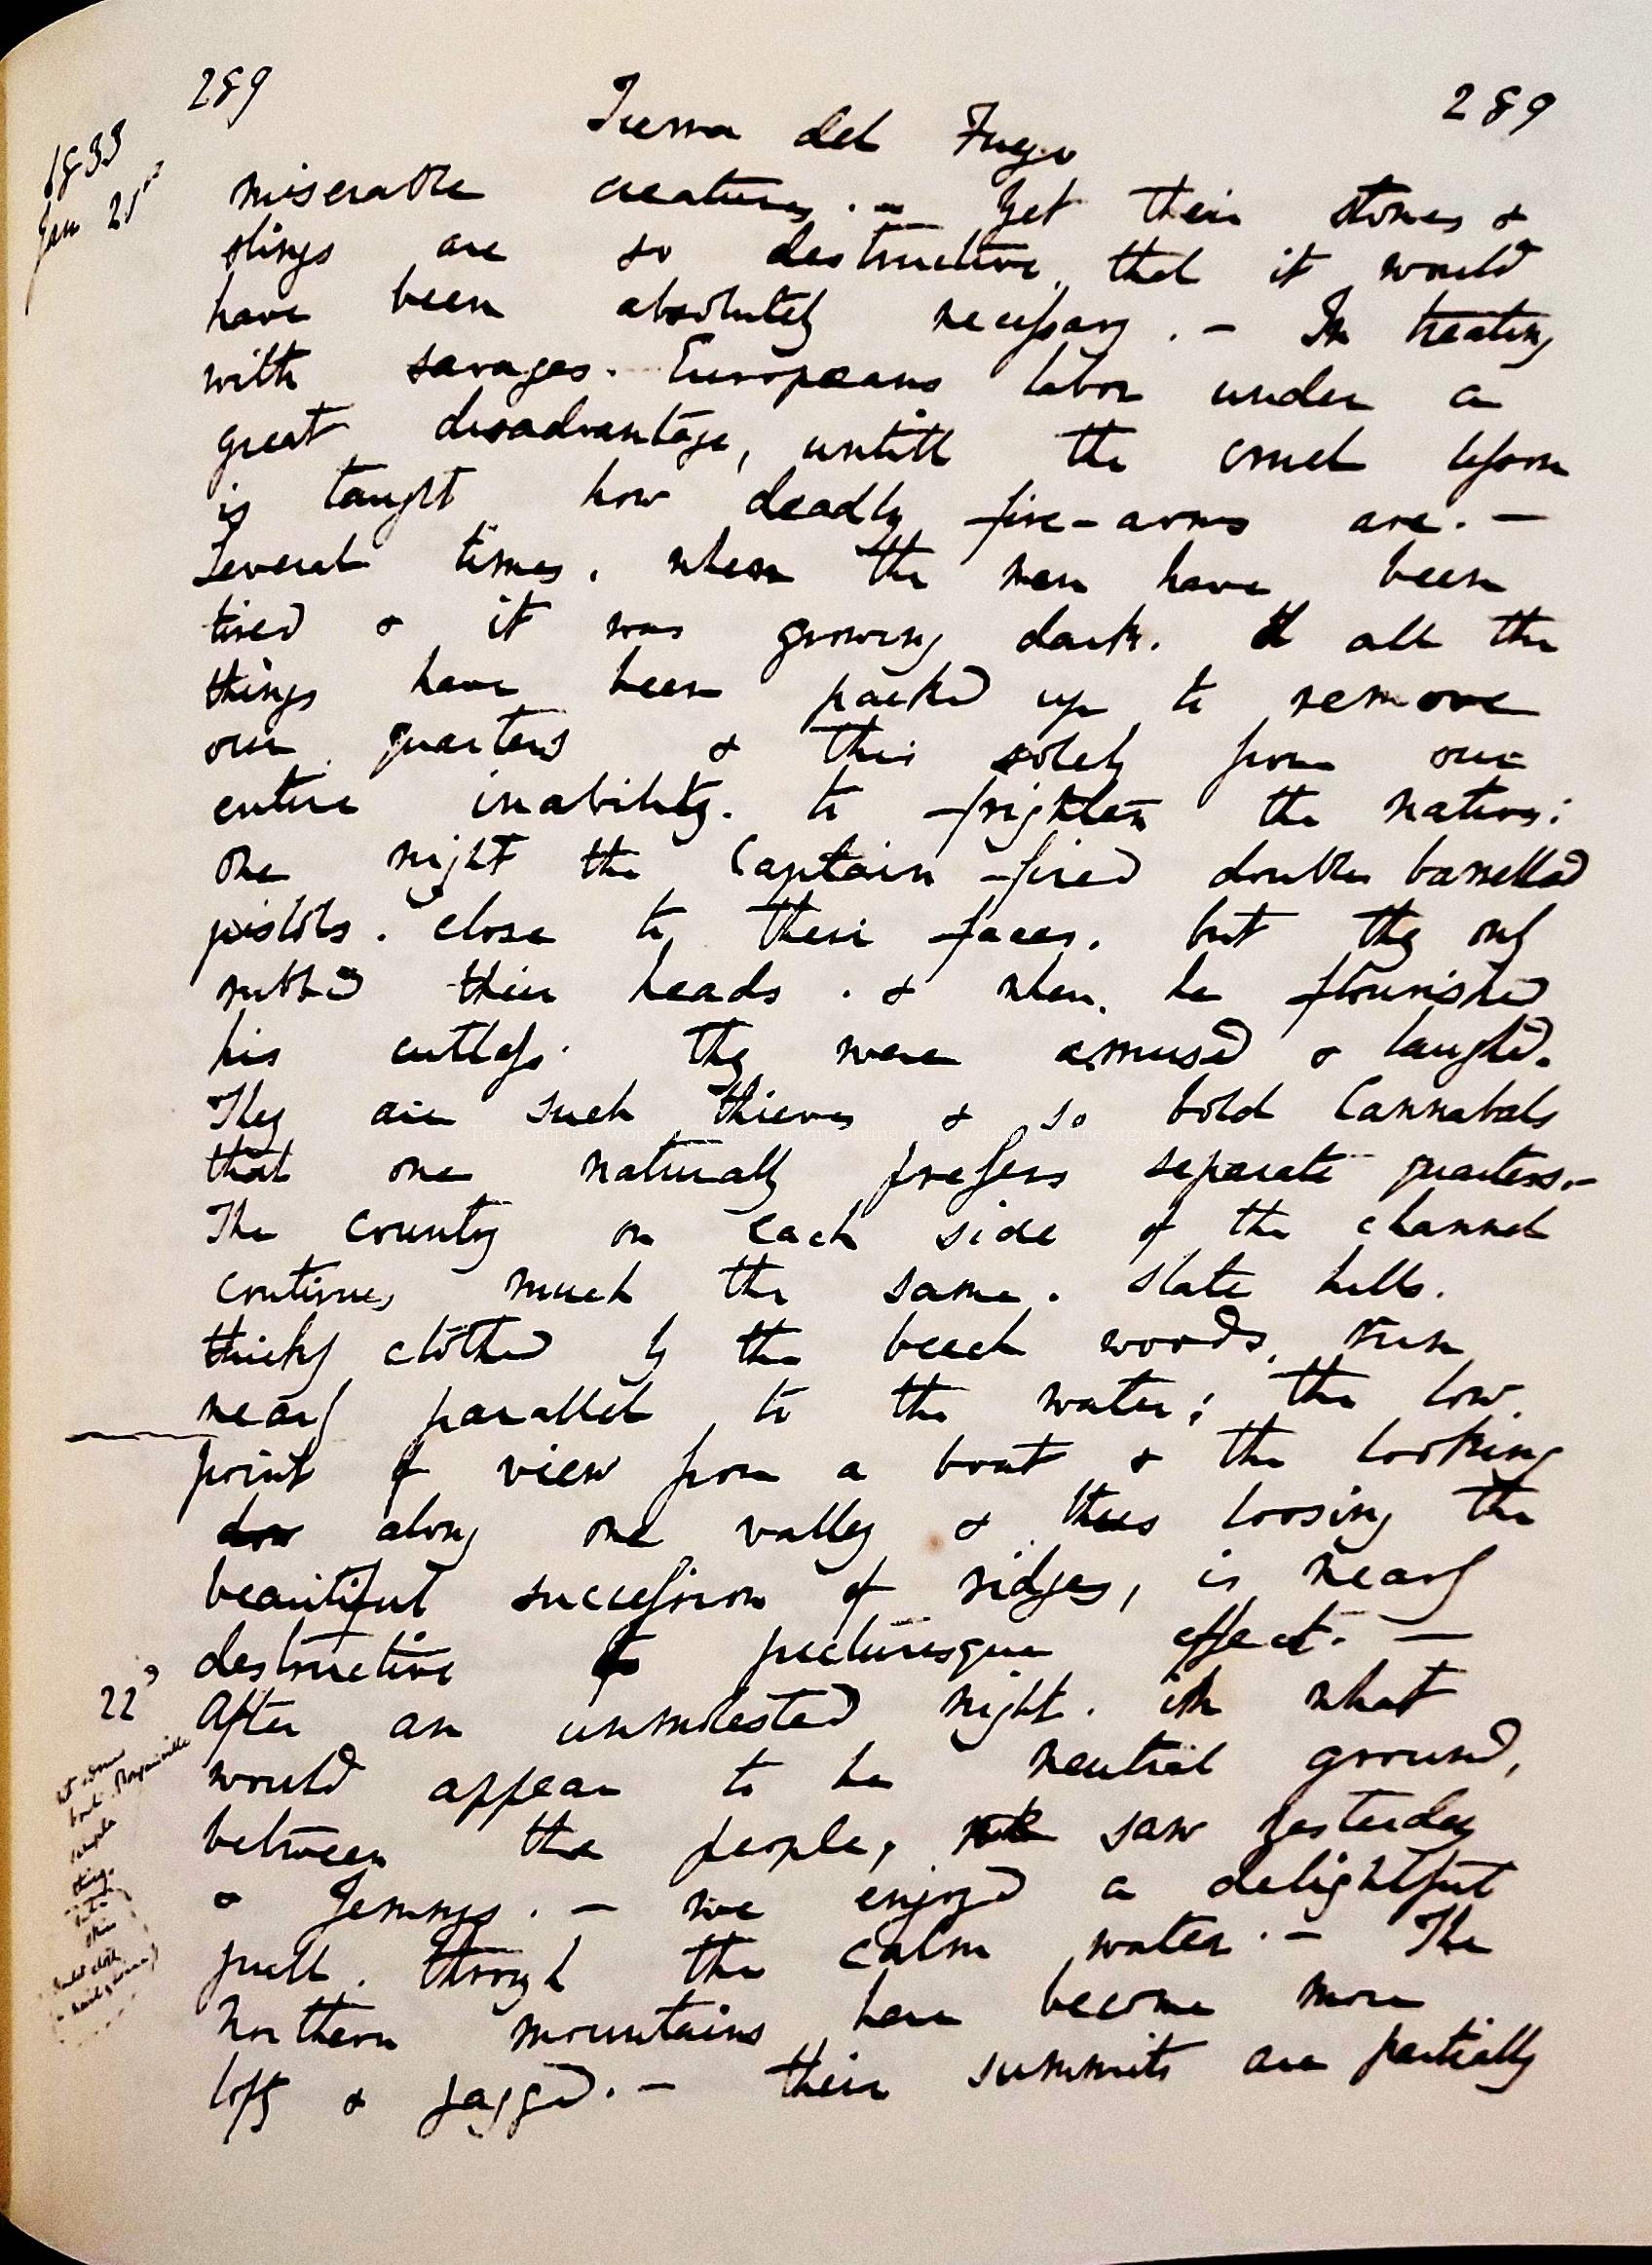 289 Tierra del Fuego 289
1833
Jan 21st
miserable creatures. — Yet their stones &
slings are so destructive that it would
have been absolutely necessary. — In treating
with savages. Europaeans labor under a
great disadvantage, untill the cruel lesson
is taught how deadly fire-arms are. —
Several times, when the men have been
tired & it was growing dark. all the
things have been packed up to remove
our quarters & this solely from our
entire inability. to frighten the natives:
One night the Captain fired double barrelled
pistols. close to their faces, but they only
rubbed their heads. & when he flourished
his cutlass. they were amused & laughed.
They are such thieves & so bold Cannabals
that one naturally prefers separate quarters. —
The country on each side of the channel
continues much the same. slate hills.
thickly clothed by the beech woods, run
nearly parallel to the water; the low
point of view from a boat & the looking
along one valley & thus loosing the
beautiful succession of ridges, is nearly
destructive to picturesque effect. —
22d After an unmolested night. in what
would appear to be neutral ground,
between the people, we saw yesterday
& Jemmys. — we enjoyed a delightful
pull. through the calm water. — The
Northern mountains here become more
lofty & jagged. — their summits are partially
Bougainville
simple
things